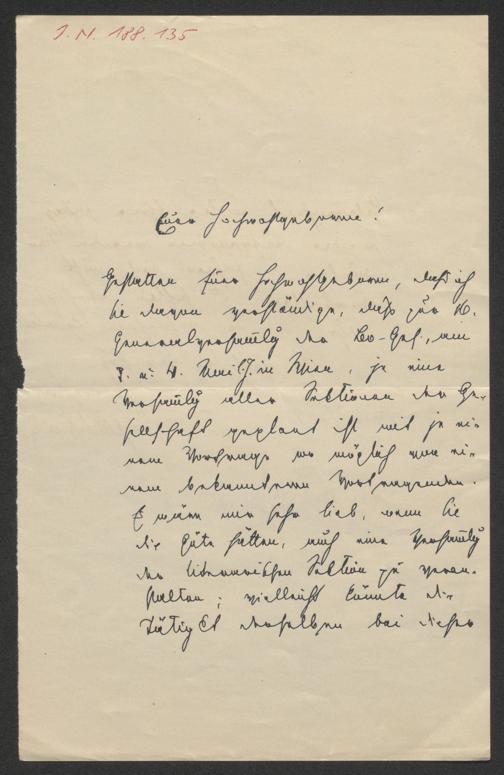 J. N. 188.135
Euer Hochwohlgeboren!
Gestatten Euer Hochwohlgeboren, daß ich
Sie davon verständige, daß zur 10.
Generalversamlg der Leo-Ges., am
3. u. 4. l. J. in Wien, je eine
Versamlg aller Sektionen der Ge-
sellschaft geplant ist mit je ei-
nem Vortrage wo möglich von ei-
nem bekannteren Vortragenden.
E wäre mir sehr lieb, wenn Sie
die Güte hätten, auch eine Versamlg
der literarischen Sektion zu veran-
stalten; vielleicht könnte die
Tätigkt derselben bei dieser